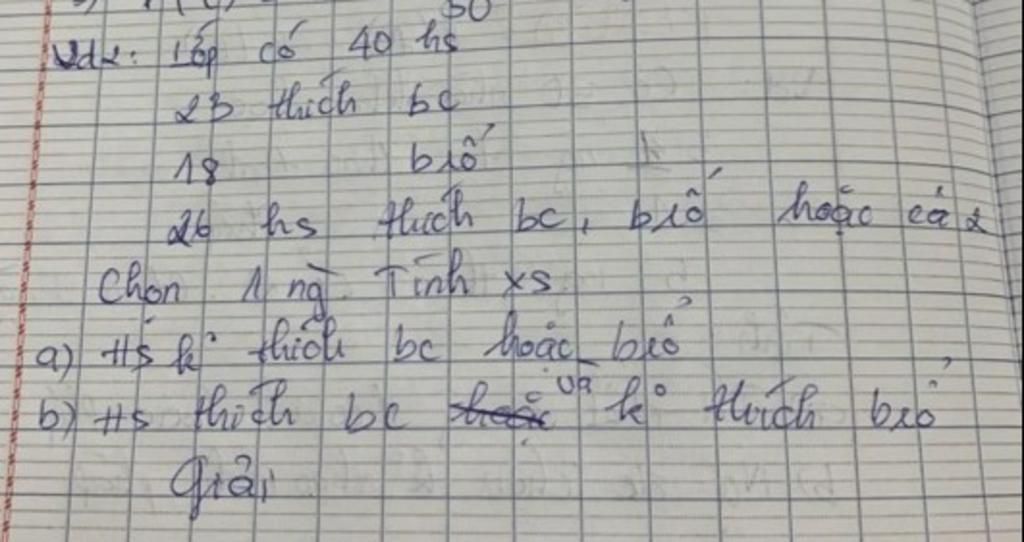 50
Vd2: Lớp có 40 hs
23 thích bc
18 brổ
26 hs thích bc, brổ hoặc cả 2
Chọn 1 ng. Tính xs
a) Hs k° thích bc hoặc brổ
b) Hs thích bc và k° thích brổ
Giải